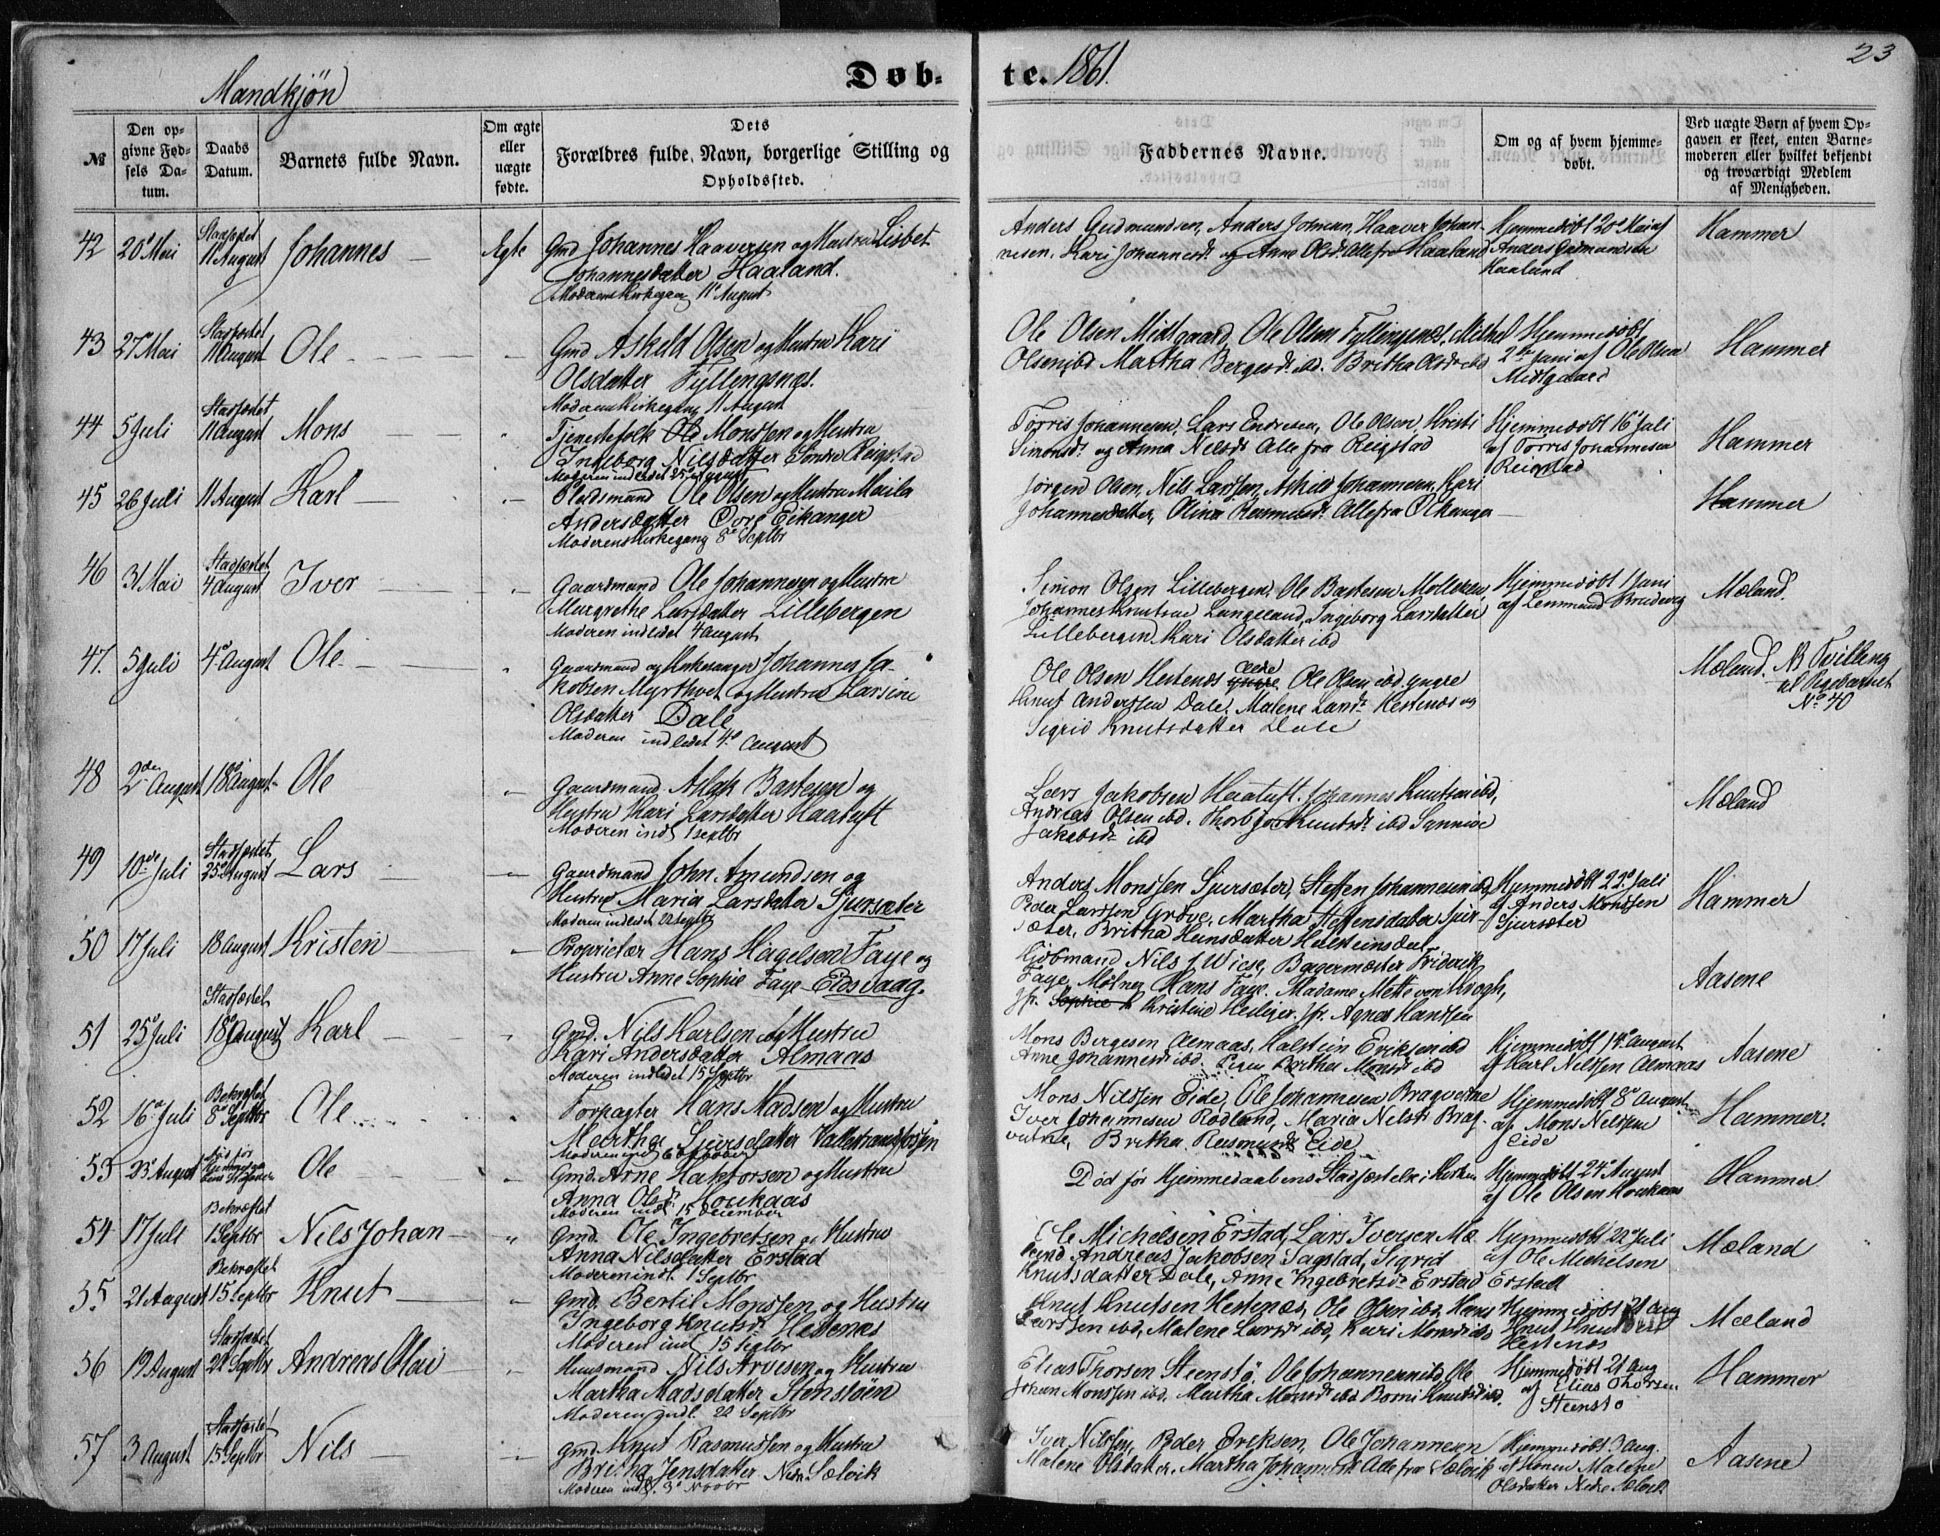 23
Mandkjøn
Døbte. 1861.
№
Den opgivne Fødsels Datum.
Daabs Datum.
Barnets fulde Navn.
Om ægte eller uægte fødte.
Dets
Forældres fulde Navn, borgerlige Stilling og
Opholdssted.
Faddernes Navne.
Om og af hvem hjemmedøbt.
Ved uægte Børn af hvem Opgaven er skeet, enten Barnemoderen eller hvilket bekjendt og troværdigt Medlem af Menigheden.
42 20 Mai Stadfæstet 11 August Johannes Ægte Gmd Johannes Haaversen og Hustru Lisbet
Johannesdatter Haaland.
Moderens Kirkegang 11 August
Anders Gudmundsen, Anders Johnsen, Haaver Johan-
nesen, Kari Johannesdr og Anne Olsdr Alle fra Haaland
Hjemmedøbt 20 Mai af
Anders Gudmundsen
Haaland
Hammer
43 27 Mai Stadfæstet 11 August Ole Gmd Askeld Olsen og Hustru Kari
Olsdatter Fyllingsnæs.
Moderens Kirkegang 11 August
Ole Olsen Midtgaard, Ole Olsen Fyllingsnæs, Mikkel
Olsen ibd Martha Bergesdr ibd. Britha Olsdr ibd
Hjemmedøbt
2 Juni af Ole Olsen
Midtgaard
Hammer
44 5 Juli Stadfæstet 11 August Mons Tjenestefolk Ole Monssen og Hustru
Ingeborg Nilsdatter Søndre Reigstad
Moderen indledet 25 August
Torris Johannesen, Lars Endresen, Ole Olsen, Kristi
Simonsdr og Anna Nilsdr Alle fra Reigstad
Hjemmedøbt 16 Juli
af Torris Johannesen
Reigstad
Hammer
45 26 Juli 11 August Karl Ole Olsen og Hustru
Andersdatter Eikanger
Moderens Kirkegang 8 Septbr
Jørgen Olsen, Nils Larssen, Askild Johannesen, Kari
Johannesdatter, Olina Rasmusdr Alle fra Eikanger
Hammer
46 31 Mai Stadfæstet 4 August Iver Gaardmand Ole Johannesen og Hustru
Margrethe Larsdatter Lillebergen
Moderen indledet 4 August
Simon Olsen Lillebergen, Ole Bastesen
Johannes Knutsen Langeland, Ingeborg Larsdatter
Lillebergen, Kari Olsdatter ibd
Hjemmedøbt 1 Juni
Mæland.
47. 5 Juli 4 August Ole Gaardmand og Kirkesanger Johannes Ja-
kobsen Myrthvet og Hustru Larsine
Olsdatter Dale
Moderen indledet 4 August
Ole Olsen Hestenæs ældre Ole Olsen ibd yngre
Knut Anderssen Dale, Malene Larsdr Hestenæs og
Sigrid Knutsdatter Dale
Mæland. NB Tvilling
til Pigebarnet
No 40
48 2den August 18 August Ole Gaardmand Aslak Bastesen og
Hustru Kari Larsdatter Haatuft
Moderen indl 1 Septbr
Lars Jakobsen Haatuft. Johannes Knutsen ibd,
Andreas Olsen ibd. Thorbjør Knutsdr ibd Synneve
Jakobsdr ibd
Mæland
49 10de Juli Stadfæstet 25 August Lars Gaardmand John Amundsen og
Hustru Maria Larsdatter Sjursæter
Anders Monssen Sjursæter, Steffen Johannesen ibd
Peder Larssen Grove, Martha Steffensdatter Sjur-
sæter, Britha Hansdatter Halsteinsdal
Hjemmedøbt 22 Juli
af Anders Monssen
Sjursæter
Hammer
50 17 Juli 18 August Kristen Proprietær Hans Hagelsen Faye og
Hustru Anne Sophie Faye Eidsvaag.
Kjøbmand Nils Wiese, Bagermester Friderik
Faye, Møller Hans Faye. Madame Mette von Krogh,
Jfr. Kristine Heiliger. Jfr. Agnes Hanssen
Aasene
51 25 Juli Stadfæstet 18 August Karl Gmd. Nils Karlsen og Hustru
Kari Andersdatter Almaas
Moderen indledet 15 Septbr
Mons Bergesen Almaas, Halstein Eriksen ibd
Anne Johannesdr ibd. Pigen Martha Monsdr ibd
Hjemmedøbt 14 August
af Karl Nilssen Almaas
Aasene
52 16 Juli Bekræftet 8 Septbr Ole Forpagter Hans Madsen og Hustru
Martha Sjursdatter Vallestrandsfossen
Moderen indl 6 October
Mons Nilssen Eide, Ole Johannesen Bragvatne
Iver Johannesen Rødland, Maria Nilsdr Brag-
vatne, Britha Rasmusdr Eide
Hjemmedøbt 8 August
af Mons Nilssen
Eide
Hammer.
53 23 August Død før Ole Gmd. Arne Haktorsen og Hustru
Anna Olsdr Houkaas
Moderen indl 15 December
Død før Hjemmedaabens Stadfæstelse i Kirken
Hjemmedøbt 24 August
af Ole Olsen Houkaas
Hammer
54 17 Juli Bekræftet 1 Septbr Nils Johan Gmd. Ole Ingebretsen og Hustru
Anna Nilsdatter Erstad
Moderen indl 1 Septbr
Ole Michelsen Erstad, Lars Iversen Mæ-
land, Andreas Jakobsen Sagstad, Sigrid
Knutsdatter Dale, Anne Ingebretsdr Erstad
Hjemmedøbt 22 Juli
af Ole Michelsen
Erstad
Mæland
55 21 August Bekræftet 15 Septbr Knut Gmd. Bertil Monssen og Hustru
Ingeborg Knutsdr Hestenæs
Moderen indl 15 Septbr
Knut Knutsen Hestenæs, Ole Olsen ibd, Hans
Larssen ibd, Malene Larsdr ibd, Kari Monsdr ibd
Hjemmedøbt 21 Aug
Knut Knutsen
Hestenæs
Mæland
56 19 August Stadfæstet 22 Septbr Andreas Olai Huusmand Nils Arvesen og Hustru
Martha Madsdatter Stenstøen
Moderen indl. 22 Septbr
Elias Thorsen Steenstø, Ole Johannesen ibd, Ole
Johan Monssen ibd, Martha Monsdr ibd Knutsdr ibd.
Hjemmedøbt 21 Aug
af Elias Thorsen
Steenstø
Hammer
57 3 August Stadfæstet 15 Septbr Nils Gmd. Knut Rasmussen og Hustru
Britha Jensdatter Nedre Sælvik
Moderen indl. 3 Novbr
Iver Nilssen, Peder Eriksen, Ole Johannesen
Malene Olsdatter, Martha Johannesdr Alle fra Sælvik
Hjemmedøbt 3 Aug.
af Konen Malene
Olsdatter Nedre Sælvik
Aasene